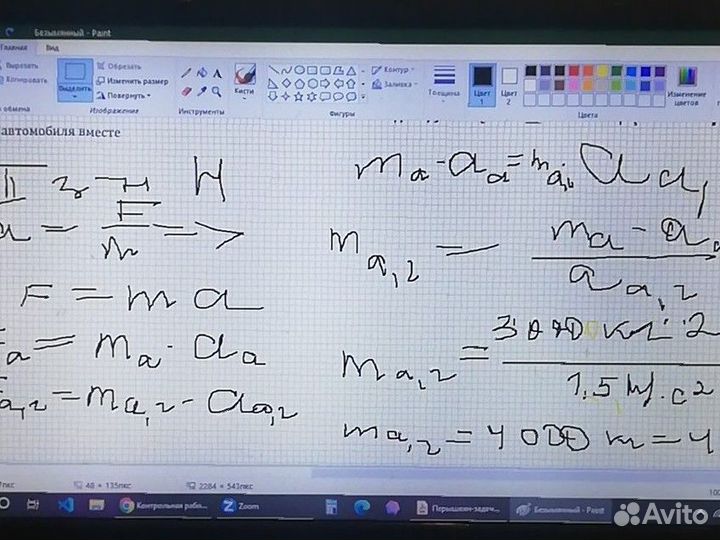 Безымянный - Paint
Главная Вид
Вырезать
Копировать
обмена
Выделить
Обрезать
Изменить размер
Повернуть
Изображение
Инструменты
Кисти
Фигуры
Контур
Заливка
Толщина
Цвет 1
Цвет 2
Цвета
Изменение цветов
автомобиля вместе
II з-н Н
a = F/m =>
F = ma
Fa = ma · aa
Fa,2 = ma,2 - aa,2
ma · aa = ma,2 aa,
ma,2 = ma - aa / aa,2
ma,2 = 3000 кг · 2 / 1,5 м/с2
ma,2 = 4 000 кг = 4
48 × 135пкс
2284 × 543пкс
Контрольная рабо...
Zoom
Перышкин-задач...
Безымянный - Paint
Avito